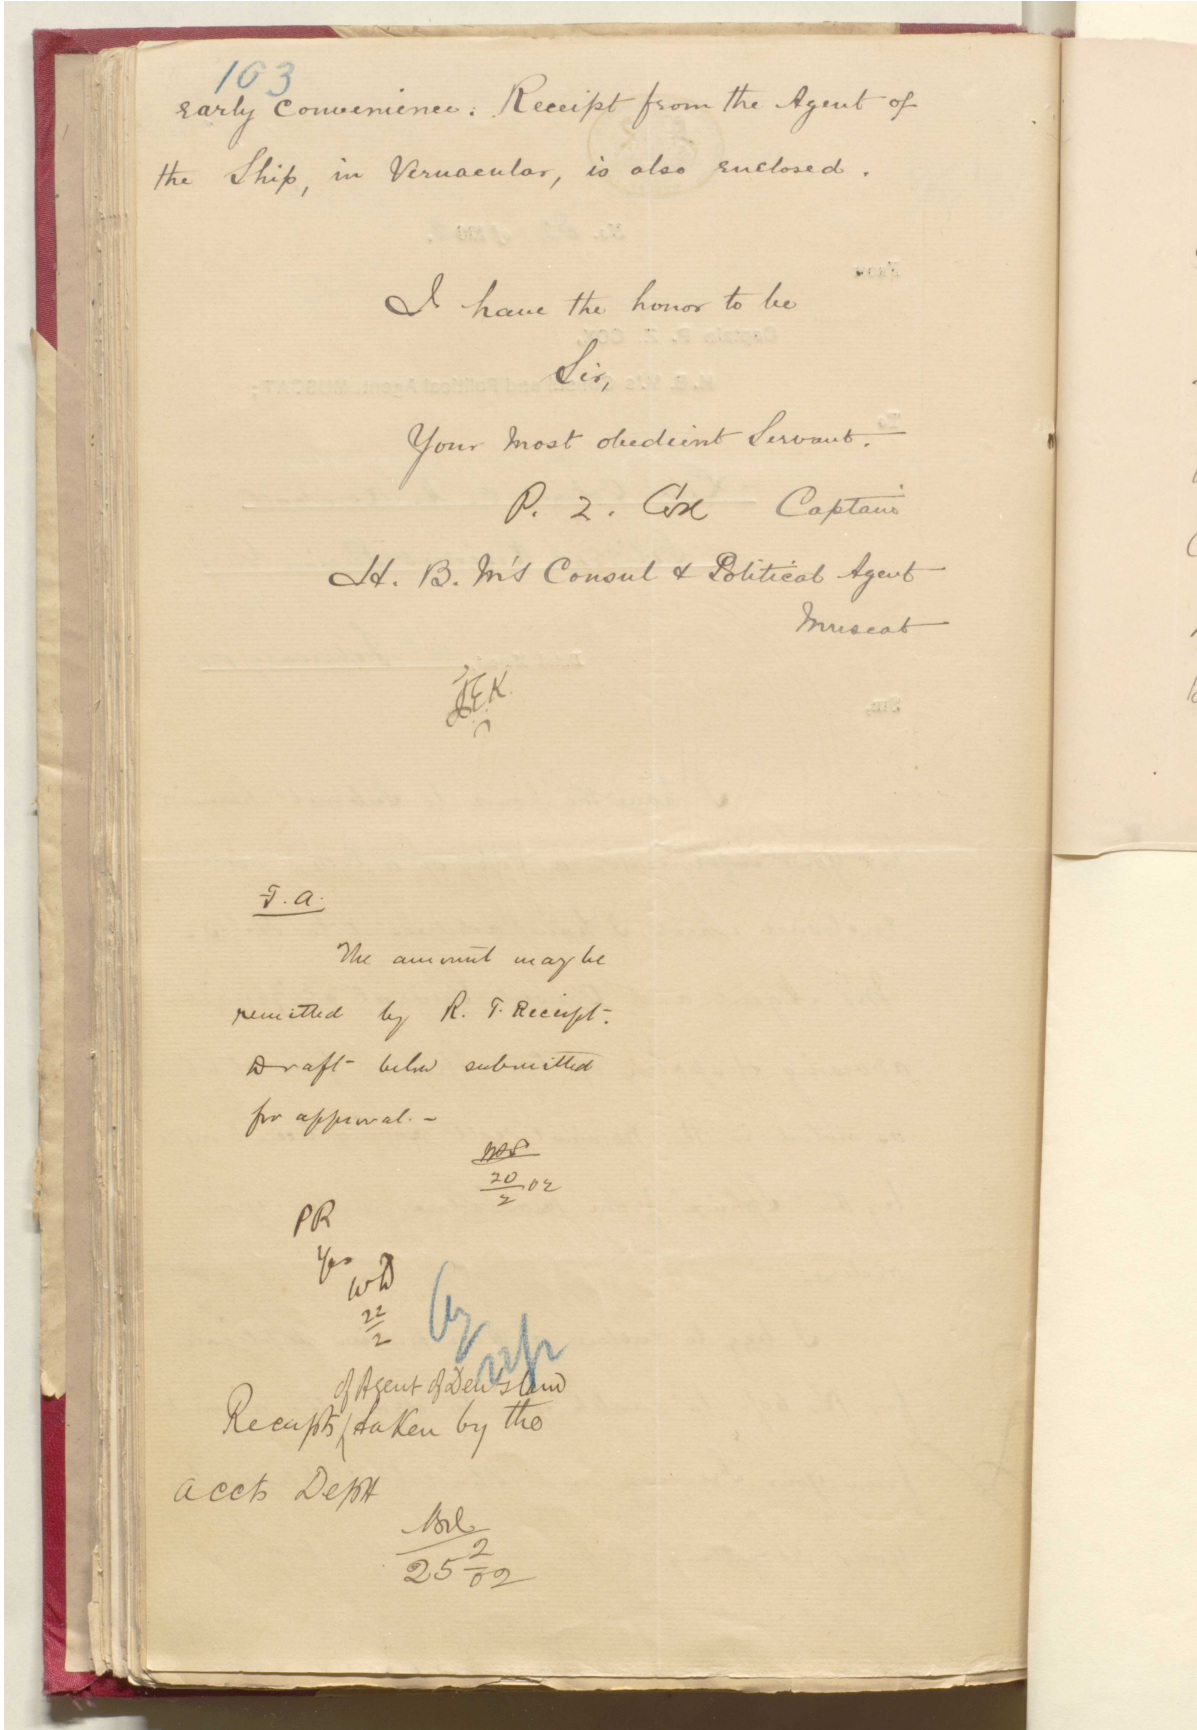 103
early convenience. Receipt from the Agent of
the Ship, in Vernacular, is also enclosed.
I have the honor to be
Sir,
Your most obedient Servant.
P. Z. Cox Captain
H. B. M's Consul & Political Agent
Muscat
J.E.K.
T. A.
The amount may be
remitted by R. T. Receipt.
Draft below submitted
for approval. -
20/2 02
PR
Yes
WD
22/2
of Agent of
Receipts taken by the
accts Deptt
25 2/02